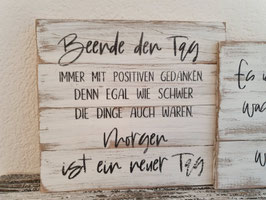 Beende den Tag
IMMER MIT POSITIVEN GEDANKEN,
DENN EGAL WIE SCHWER
DIE DINGE AUCH WAREN,
Morgen
ist ein neuer Tag
Es
w